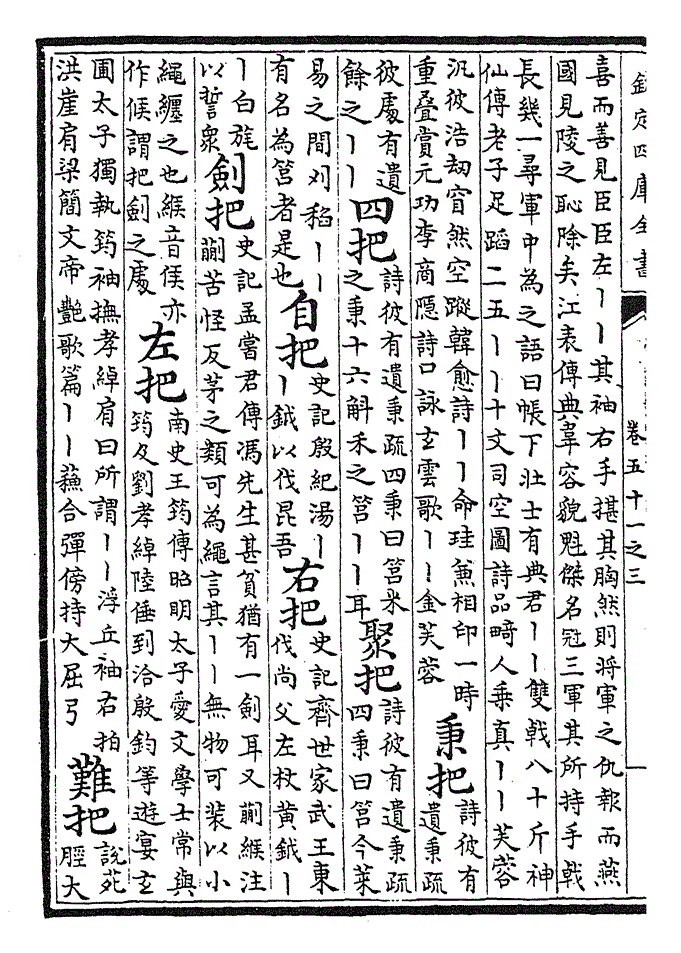 欽定四庫全書
卷五十一之三
喜而善見臣臣左丨丨其袖右手揕其胸然則將軍之仇報而燕
國見陵之恥除矣江表傳典韋容貌魁傑名冠三軍其所持手戟
長幾一尋軍中為之語曰帳下壯士有典君丨丨雙戟八十斤神
仙傳老子足蹈二五丨丨十文司空圖詩品畸人乗真丨丨芙蓉
汎彼浩劫窅然空蹤韓愈詩丨丨命珪兼相印一時
重叠賞元功李商隱詩口詠玄雲歌丨丨金芙蓉
秉把
詩彼有
遺秉疏
彼處有遺
餘之丨丨
四把
詩彼有遺秉疏四秉曰筥米
之秉十六斛禾之筥丨丨耳
聚把
詩彼有遺秉疏
四秉曰筥今萊
易之間刈稻丨丨
有名為筥者是也
自把
史記殷紀湯丨
丨鉞以伐昆吾
右把
史記齊世家武王東
伐尚父左杖黄鉞丨
丨白旄
以誓衆
劍把
史記孟嘗君傳馮先生甚貧猶有一劍耳又蒯緱注
蒯苦怪反茅之類可為繩言其丨丨無物可裝以小
繩纏之也緱音侯亦
作候謂把劍之處
左把
南史王筠傳昭明太子愛文學士常與
筠及劉孝綽陸倕到洽殷鈞等遊宴玄
圃太子獨執筠袖撫孝綽肩曰所謂丨丨浮丘袖右拍
洪崖肩梁簡文帝艷歌篇丨丨蘓合彈傍持大屈弓
難把
說苑
脛大